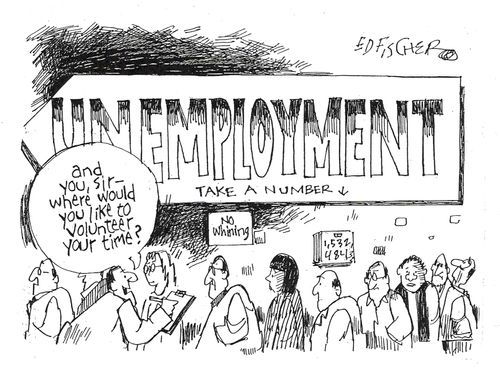 ED FISCHER
UNEMPLOYMENT
TAKE A NUMBER ↓
and
you, sir—
where would
you like to
volunteer
your time?
No
Whining
1,532,
484